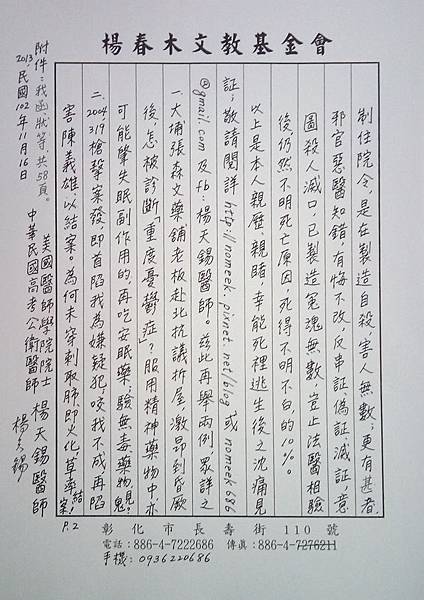 楊春木文教基金會
制住院令，是在製造自殺害人無數；更有甚者，
邪官惡醫知錯，有悔不改，反串証偽証滅証，意
圖殺人滅口，已製造冤魂無數，豈止法醫相驗
後仍然不明死亡原因，死得不明不白的10%。
以上是本人親歷、親睹，幸能死裡逃生後之沈痛見
証；敬請閱詳 http://nomeek.pixnet.net/blog 或 nomeek686
@gmail.com 及 fb：楊天錫醫師。茲此再舉兩例，眾詳之
一、大埔張森文藥鋪老板赴北抗議拆屋，激昂到昏厥
後，怎被診斷「重度憂鬱症」？服用精神藥物中亦
可能肇失眠副作用的，再吃安眠藥；驗無毒藥物，見鬼！
二、2004、319槍擊案發，即首陷我為嫌疑犯，咬我不成再陷
害陳義雄以結案。為何未穿刺取肺即火化草率結案！
美國醫師學院院士
中華民國高考公衛醫師 楊天錫醫師
楊天錫
2013，民國102年11月16日
附件：我函狀等，共58頁。
P.2
彰化市長壽街110號
電話：886-4-7222686 傳眞：886-4-7276211
手機：0936220686